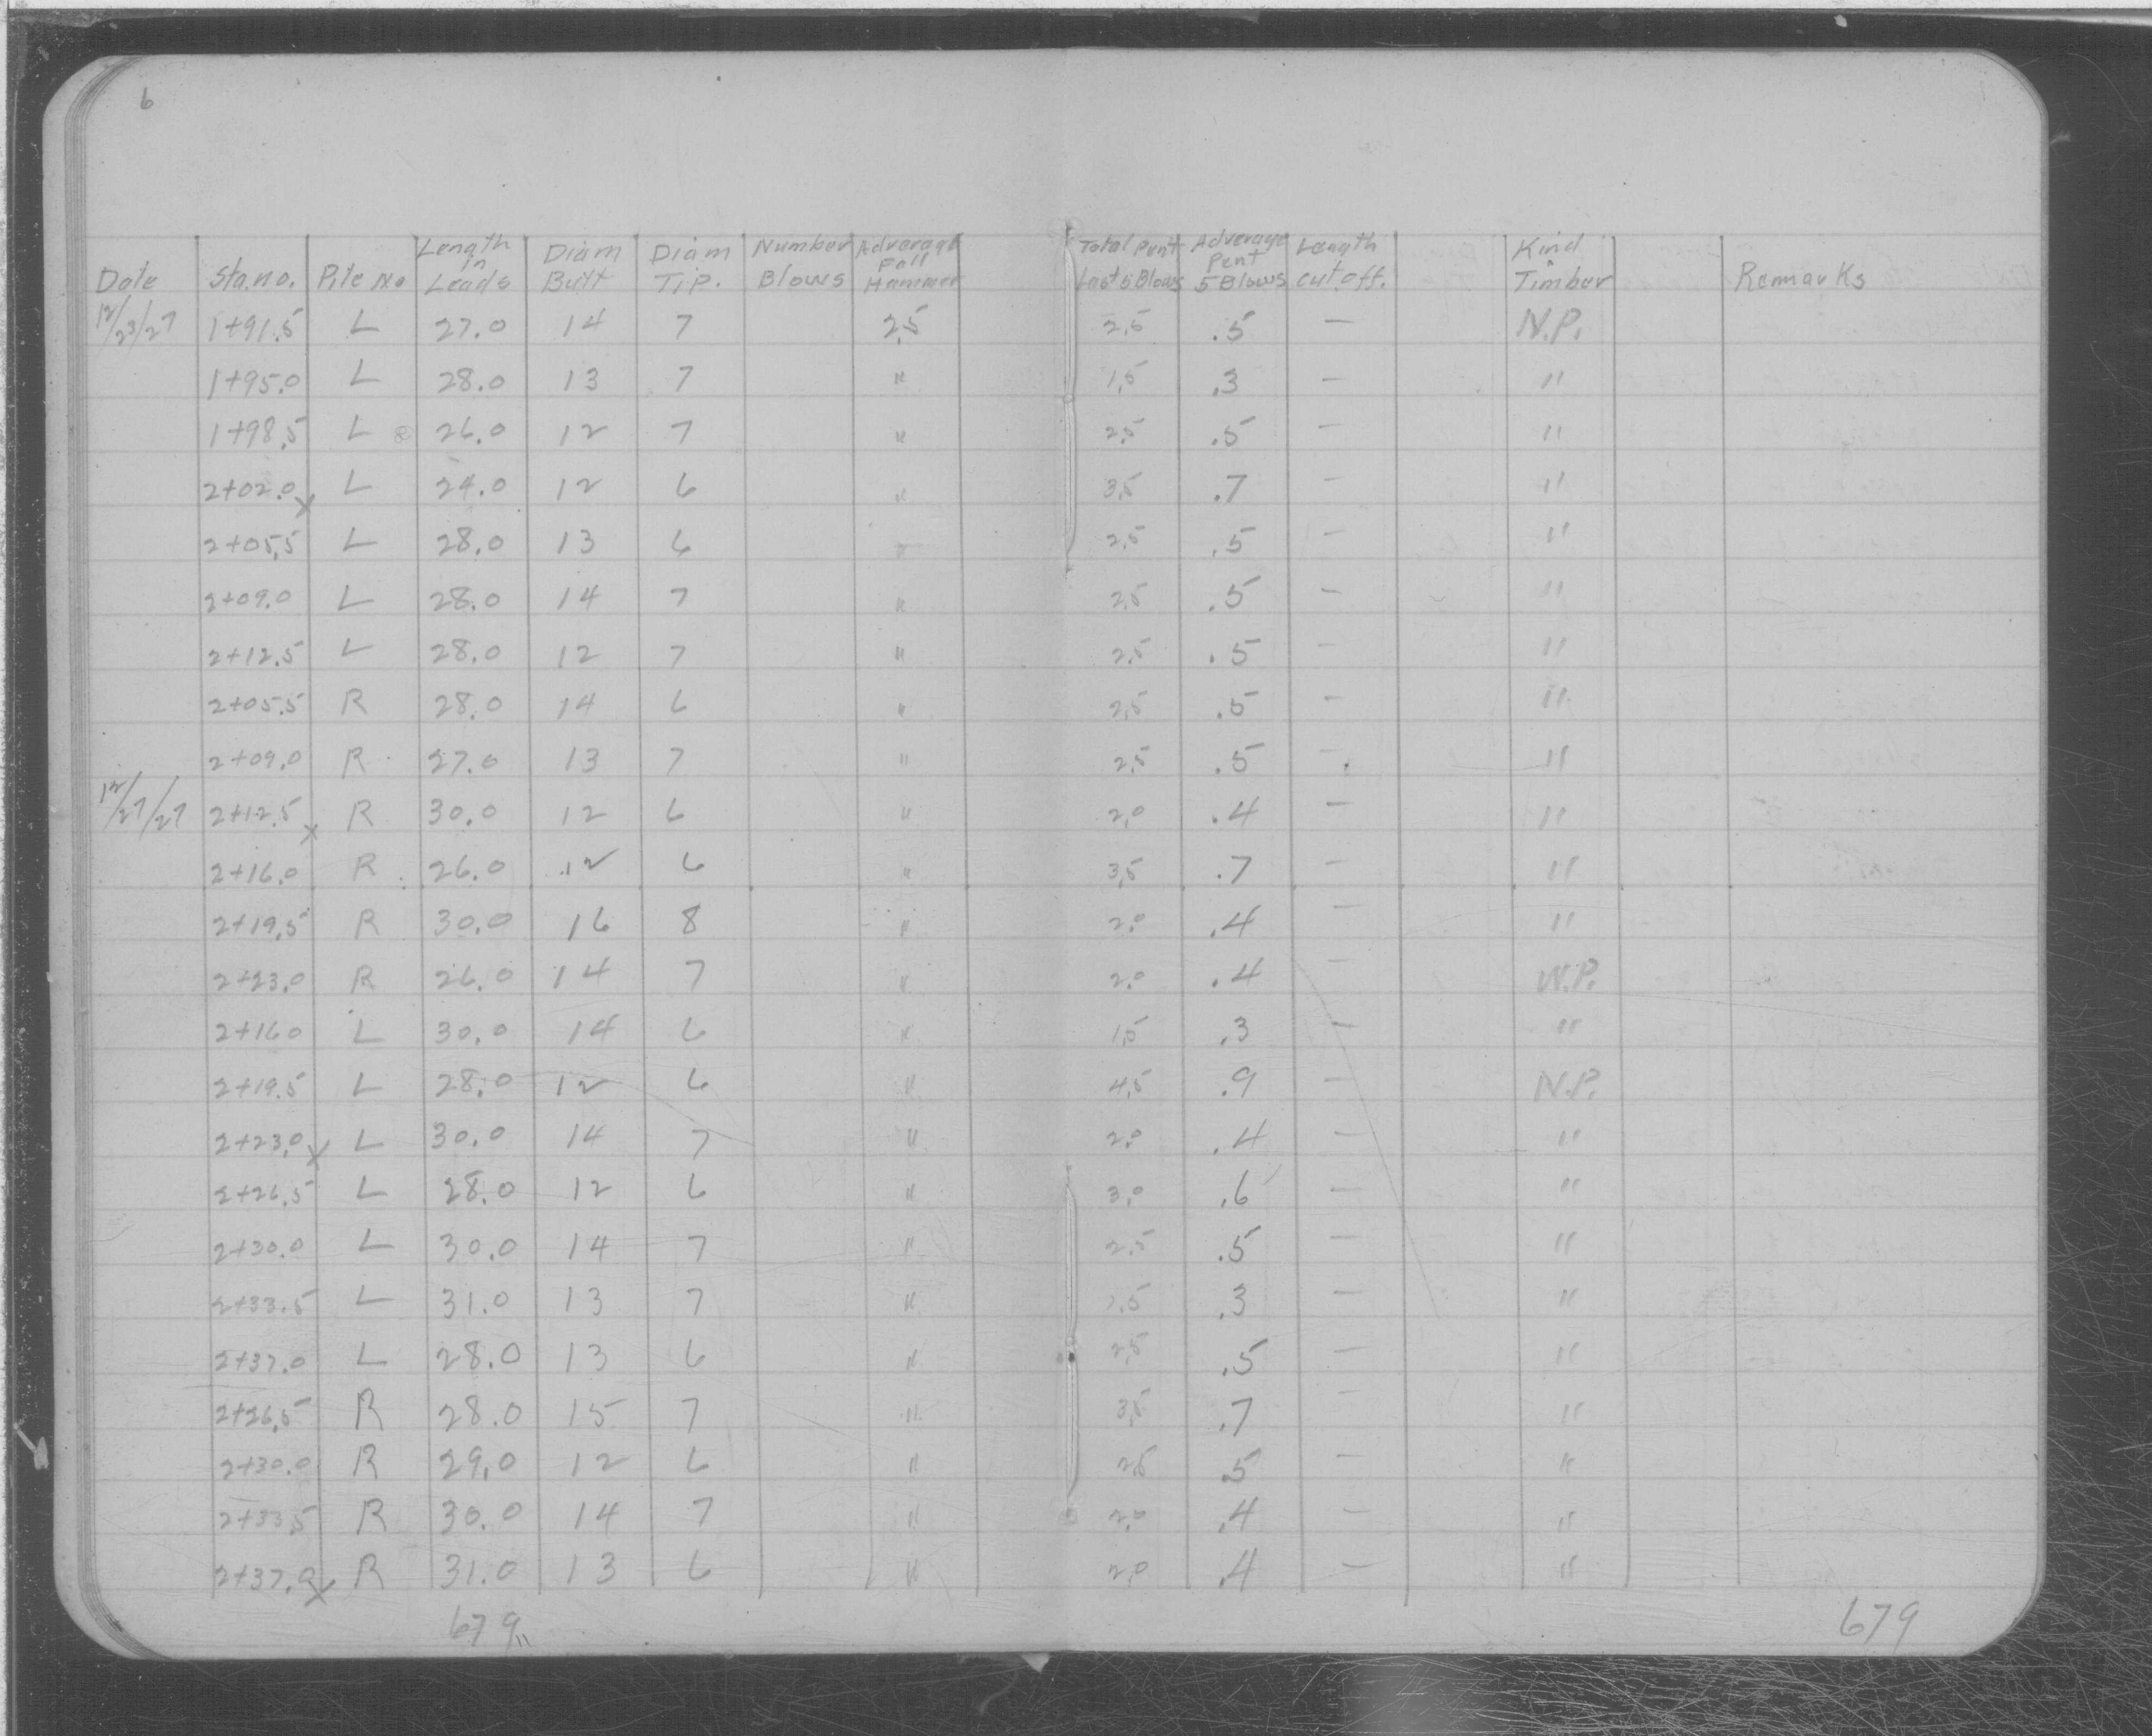 6
Date Sta.no. Pile No Length in Leads Diam Butt Diam Tip. Number Blows Adverage Fall Hammer Total Pent Last 5 Blows Adverage Pent 5 Blows Length cut off. Kind Timber Remarks
12/23/27 1+91.5 L 27.0 14 7 2.5 2.5 .5 — N.P.
1+95.0 L 28.0 13 7 " 1.5 .3 — "
1+98.5 L 26.0 12 7 " 2.5 .5 — "
2+02.0 x L 24.0 12 6 " 3.5 .7 — "
2+05.5 L 28.0 13 6 " 2.5 .5 — "
2+09.0 L 28.0 14 7 " 2.5 .5 — "
2+12.5 L 28.0 12 7 " 2.5 .5 — "
2+05.5 R 28.0 14 6 " 2.5 .5 — "
2+09.0 R 27.0 13 7 " 2.5 .5 — "
12/27/27 2+12.5 x R 30.0 12 6 " 2.0 .4 — "
2+16.0 R 26.0 12 6 " 3.5 .7 — "
2+19.5 R 30.0 16 8 " 2.0 .4 — "
2+23.0 R 26.0 14 7 " 2.0 .4 — W.P.
2+16.0 L 30.0 14 6 " 1.5 .3 — "
2+19.5 L 28.0 12 6 " 4.5 .9 — N.P.
2+23.0 x L 30.0 14 7 " 2.0 .4 — "
2+26.5 L 28.0 12 6 " 3.0 .6 — "
2+30.0 L 30.0 14 7 " 2.5 .5 — "
2+33.5 L 31.0 13 7 " 1.5 .3 — "
2+37.0 L 28.0 13 6 " 2.5 .5 — "
2+26.5 R 28.0 15 7 " 3.5 .7 — "
2+30.0 R 29.0 12 6 " 2.5 .5 — "
2+33.5 R 30.0 14 7 " 2.0 .4 — "
2+37.0 x R 31.0 13 6 " 2.0 .4 — "
679" 679